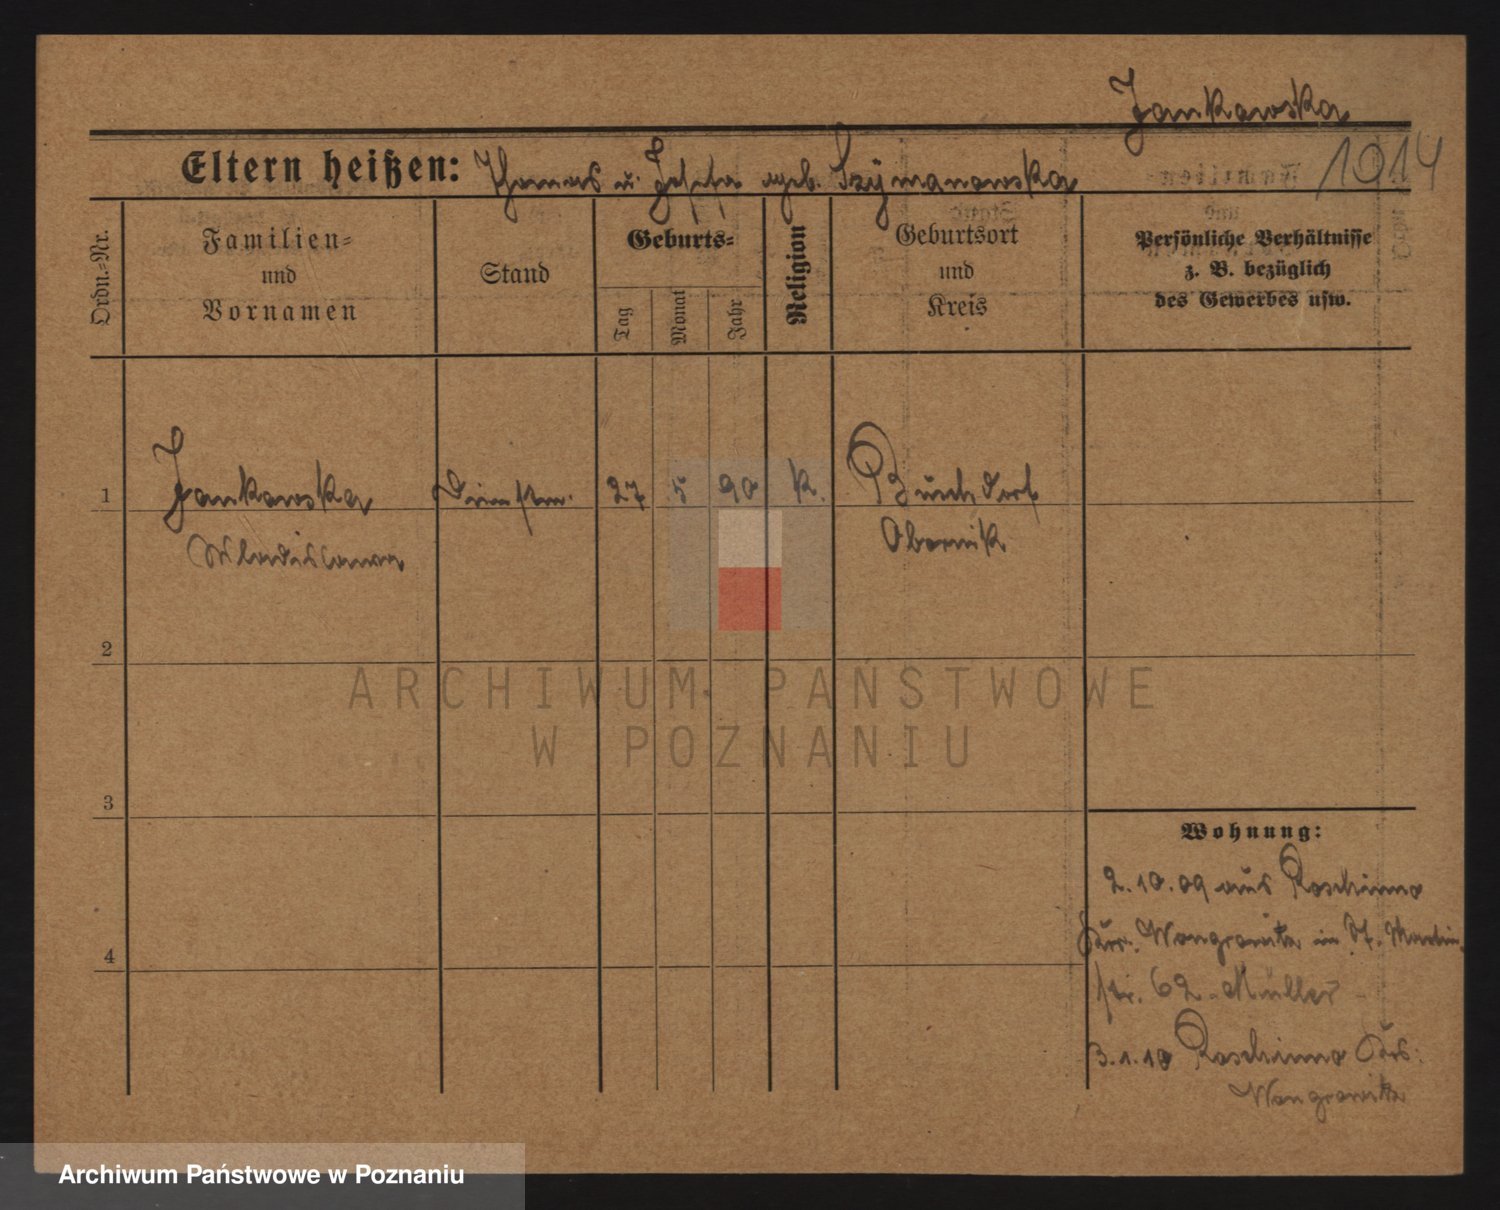 Jankowska
1014
Eltern heißen: Thomas u. Josefa geb. Szymanowska
Ordn.-Nr.
Familien-
und
Vornamen
Stand
Geburts-
Tag
Monat
Jahr
Religion
Geburtsort
und
Kreis
Persönliche Verhältnisse
z. B. bezüglich
des Gewerbes usw.
1
Jankowska
Wladislawa
27
5
90
K.
Buchdorf
Obornik
2
3
4
ARCHIWUM PAŃSTWOWE
W POZNANIU
Wohnung:
2.10.09 aus Roschinno
Krs. Wongrowitz in St. Martin
str. 62 Müller
3.1.10 Roschinno Krs.
Wongrowitz
Archiwum Państwowe w Poznaniu